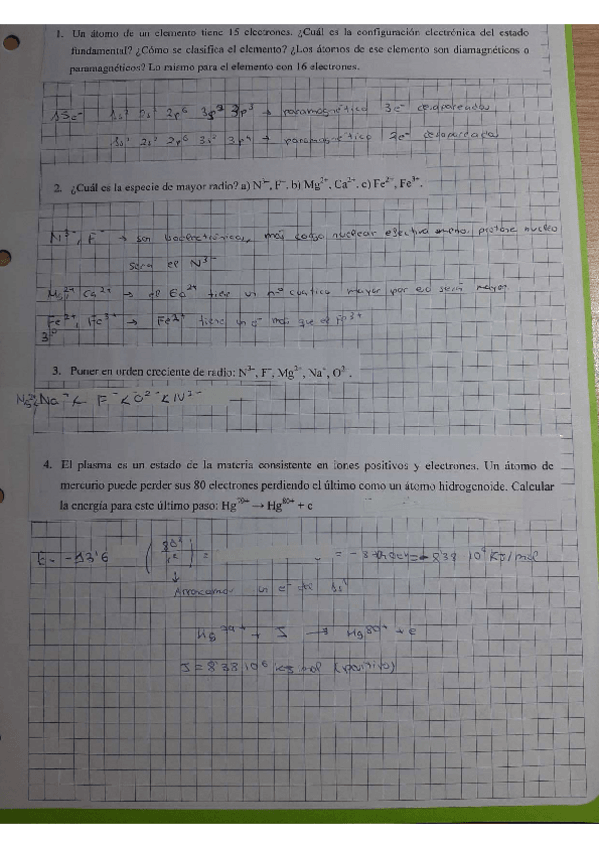 1. Un átomo de un elemento tiene 15 electrones. ¿Cuál es la configuración electrónica del estado
fundamental? ¿Cómo se clasifica el elemento? ¿Los átomos de ese elemento son diamagnéticos o
paramagnéticos? Lo mismo para el elemento con 16 electrones.
15e⁻ 1s² 2s² 2p⁶ 3p² 3p³ → paramagnético 3e⁻ desapareados
1s² 2s² 2p⁶ 3s² 3p⁴ → paramagnético 2e⁻ desapareados
2. ¿Cuál es la especie de mayor radio? a) N³⁻, F⁻. b) Mg²⁺, Ca²⁺. c) Fe²⁺, Fe³⁺.
N³⁻, F⁻ → son isoelectrónicos, más carga nuclear efectiva
será el N³⁻
Mg²⁺ Ca²⁺ → el Ca²⁺ tiene un nº cuántico mayor por eso será mayor
Fe²⁺, Fe³⁺ → Fe²⁺ tiene un e⁻ más que el Fe³⁺
3. Poner en orden creciente de radio: N³⁻, F⁻, Mg²⁺, Na⁺, O²⁻.
< F⁻ < O²⁻ < N³⁻
4. El plasma es un estado de la materia consistente en iones positivos y electrones. Un átomo de
mercurio puede perder sus 80 electrones perdiendo el último como un átomo hidrogenoide. Calcular
la energía para este último paso: Hg⁷⁹⁺ → Hg⁸⁰⁺ + e
E = -13'6 (80²/1²) =
Arrancamos un e⁻ del 1s¹
Hg⁷⁹⁺ + I → Hg⁸⁰⁺ + e
I = 8'38·10⁶ (positivo)